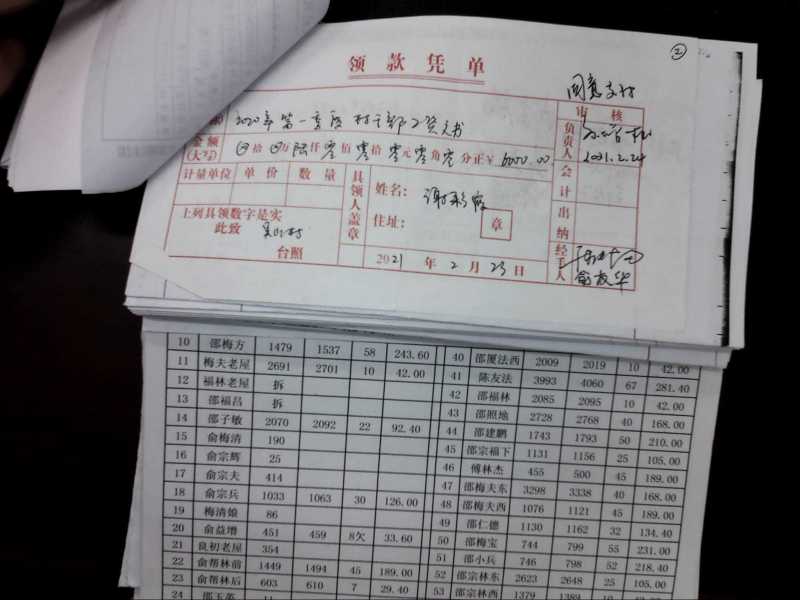 ②
领款凭单
同意支付
2020年第一季度村干部工资文书
金额(大写) ⊗拾⊗万陆仟零佰零拾零元零角零分正¥ 6000.00
计量单位 单价 数量
上列具领数字是实
此致
台照
具领人盖章
姓名:
住址:
章
2021年2月23日
审核
负责人
2021.2.24
会计
出纳
经手人
10 邵梅方 1479 1537 58 243.60
11 梅夫老屋 2691 2701 10 42.00
12 福林老屋 拆
13 邵福昌 拆
14 邵子敏 2070 2092 22 92.40
15 俞梅清 190
16 俞宗辉 25
17 俞宗夫 414
18 俞宗兵 1033 1063 30 126.00
19 梅清娘 86
20 俞益增 451 459 8欠 33.60
21 良初老屋 354
22 俞帮林前 1449 1494 45 189.00
23 俞帮林后 603 610 7 29.40
24
40 邵厦法西 2009 2019 10 42.00
41 陈友法 3993 4060 67 281.40
42 邵福林 2085 2095 10 42.00
43 邵照地 2728 2768 40 168.00
44 邵建鹏 1743 1793 50 210.00
45 邵宗福下 1131 1156 25 105.00
46 傅林杰 455 500 45 189.00
47 邵梅夫东 3298 3338 40 168.00
48 邵梅夫西 1076 1121 45 189.00
49 邵仁德 1130 1162 32 134.40
50 邵梅宝 744 799 55 231.00
51 邵小兵 746 798 52 218.40
52 邵宗林东 2623 2648 25 105.00
53 邵宗林西 1379 1389 10